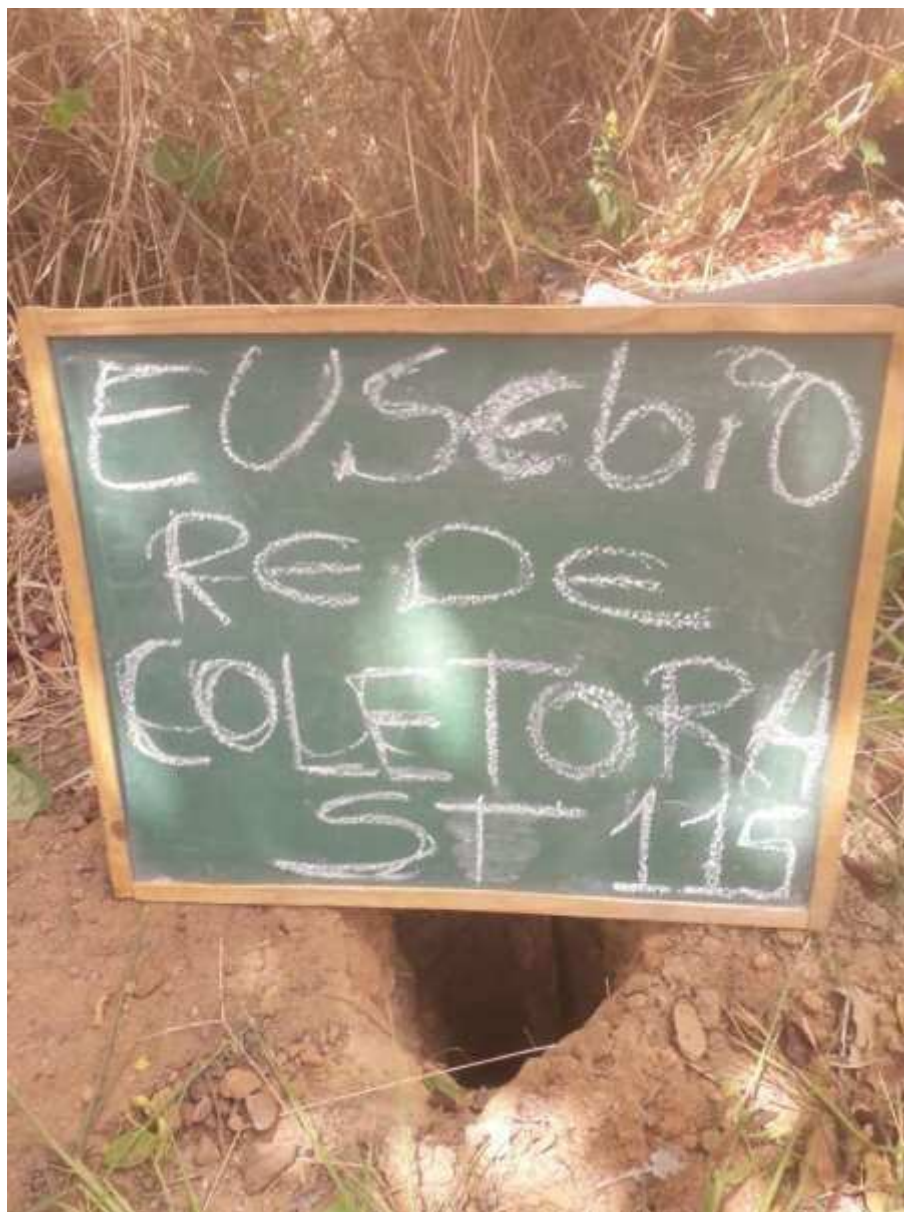 EUSEbiO
REDE
COLETORA
ST 115